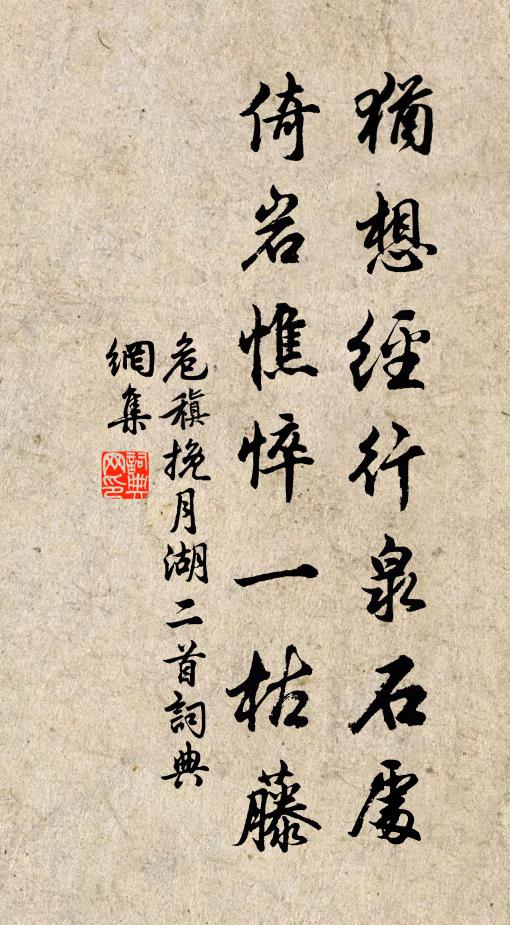 猶想經行泉石處
倚岩憔悴一枯藤
危稹挽月湖二首詞典
網集
詞典
网印